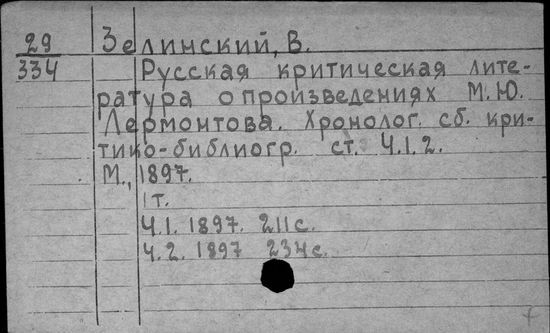 29 Зелинский, В.
334 Русская критическая лите-
ратура о произведениях М.Ю.
Лермонтова. Хронолог. сб. кри-
тико-библиогр. ст. Ч.1.2.
М., 1897.
1т.
Ч.1. 1897. 211с.
Ч.2. 1897 234с.